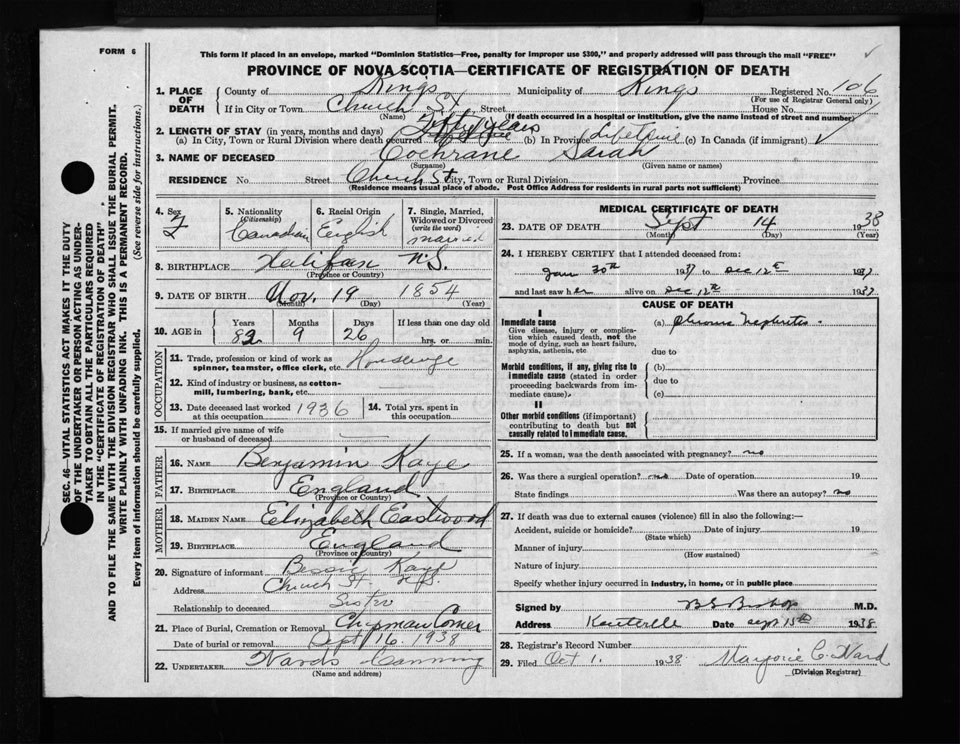 FORM 6
This form if placed in an envelope, marked "Dominion Statistics—Free, penalty for improper use $300," and properly addressed will pass through the mail "FREE"
PROVINCE OF NOVA SCOTIA—CERTIFICATE OF REGISTRATION OF DEATH
1. PLACE OF DEATH
County of Kings Municipality of Kings Registered No. 106
(For use of Registrar General only)
If in City or Town Church St Street House No.
(Name) (If death occurred in a hospital or institution, give the name instead of street and number)
2. LENGTH OF STAY (in years, months and days) Fifty years
(a) In City, Town or Rural Division where death occurred (b) In Province Lifetime (c) In Canada (if immigrant)
3. NAME OF DECEASED Cochrane Sarah
(Surname) (Given name or names)
RESIDENCE No Street Church St City, Town or Rural Division Province
(Residence means usual place of abode. Post Office Address for residents in rural parts not sufficient)
4. Sex F
5. Nationality (Citizenship) Canadian
6. Racial Origin English
7. Single, Married, Widowed or Divorced (write the word) married
8. BIRTHPLACE Halifax N.S.
(Province or Country)
9. DATE OF BIRTH Nov. 19 1854
(Month) (Day) (Year)
10. AGE in Years Months Days If less than one day old
82 9 26 hrs. or min.
OCCUPATION
11. Trade, profession or kind of work as spinner, teamster, office clerk, etc. Housewife
12. Kind of industry or business, as cotton-mill, lumbering, bank, etc.
13. Date deceased last worked at this occupation 1936
14. Total yrs. spent in this occupation
15. If married give name of wife or husband of deceased
FATHER
16. NAME Benjamin Kaye
17. BIRTHPLACE England
(Province or Country)
MOTHER
18. MAIDEN NAME Elizabeth Eastwood
19. BIRTHPLACE England
(Province or Country)
20. Signature of informant Bessie Kaye
Address Church St. N.S.
Relationship to deceased Sister
21. Place of Burial, Cremation or Removal Chipman Corner
Date of burial or removal Sept 16. 1938
22. UNDERTAKER Wards Canning
(Name and address)
MEDICAL CERTIFICATE OF DEATH
23. DATE OF DEATH Sept 14 1938
(Month) (Day) (Year)
24. I HEREBY CERTIFY that I attended deceased from:
Jan 30th 1937 to Dec 12th 1937
and last saw her alive on Dec 12th 1937
CAUSE OF DEATH
I
Immediate cause (a) Chronic Nephritis
Give disease, injury or complication which caused death, not the mode of dying, such as heart failure, asphyxia, asthenia, etc
due to
Morbid conditions, if any, giving rise to immediate cause (stated in order proceeding backwards from immediate cause).
(b)
due to
(c)
II
Other morbid conditions (if important) contributing to death but not causally related to immediate cause.
25. If a woman, was the death associated with pregnancy? no
26. Was there a surgical operation? no Date of operation 19
State findings Was there an autopsy? no
27. If death was due to external causes (violence) fill in also the following:—
Accident, suicide or homicide? Date of injury 19
(State which)
Manner of injury
(How sustained)
Nature of injury
Specify whether injury occurred in industry, in home, or in public place
Signed by B S Bishop M.D.
Address Kentville Date Sept 15th 1938
28. Registrar's Record Number
29. Filed Oct 1. 1938. Marjorie C. Ward
(Division Registrar)
SEC. 46—VITAL STATISTICS ACT MAKES IT THE DUTY
OF THE UNDERTAKER OR PERSON ACTING AS UNDER-
TAKER TO OBTAIN ALL THE PARTICULARS REQUIRED
IN THE "CERTIFICATE OF REGISTRATION OF DEATH"
AND TO FILE THE SAME WITH THE DIVISION REGISTRAR WHO SHALL ISSUE THE BURIAL PERMIT.
WRITE PLAINLY WITH UNFADING INK. THIS IS A PERMANENT RECORD.
Every item of information should be carefully supplied. (See reverse side for instructions.)